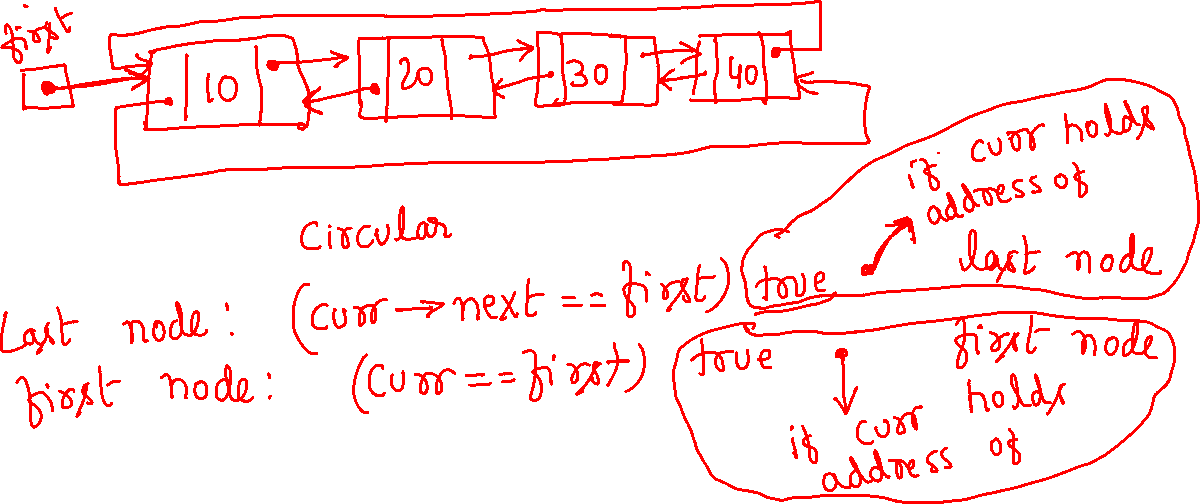 first
10 20 30 40
Circular
Last node: (curr→next == first) true if curr holds
address of
last node
first node: (curr == first) true first node
holds
if curr
address of